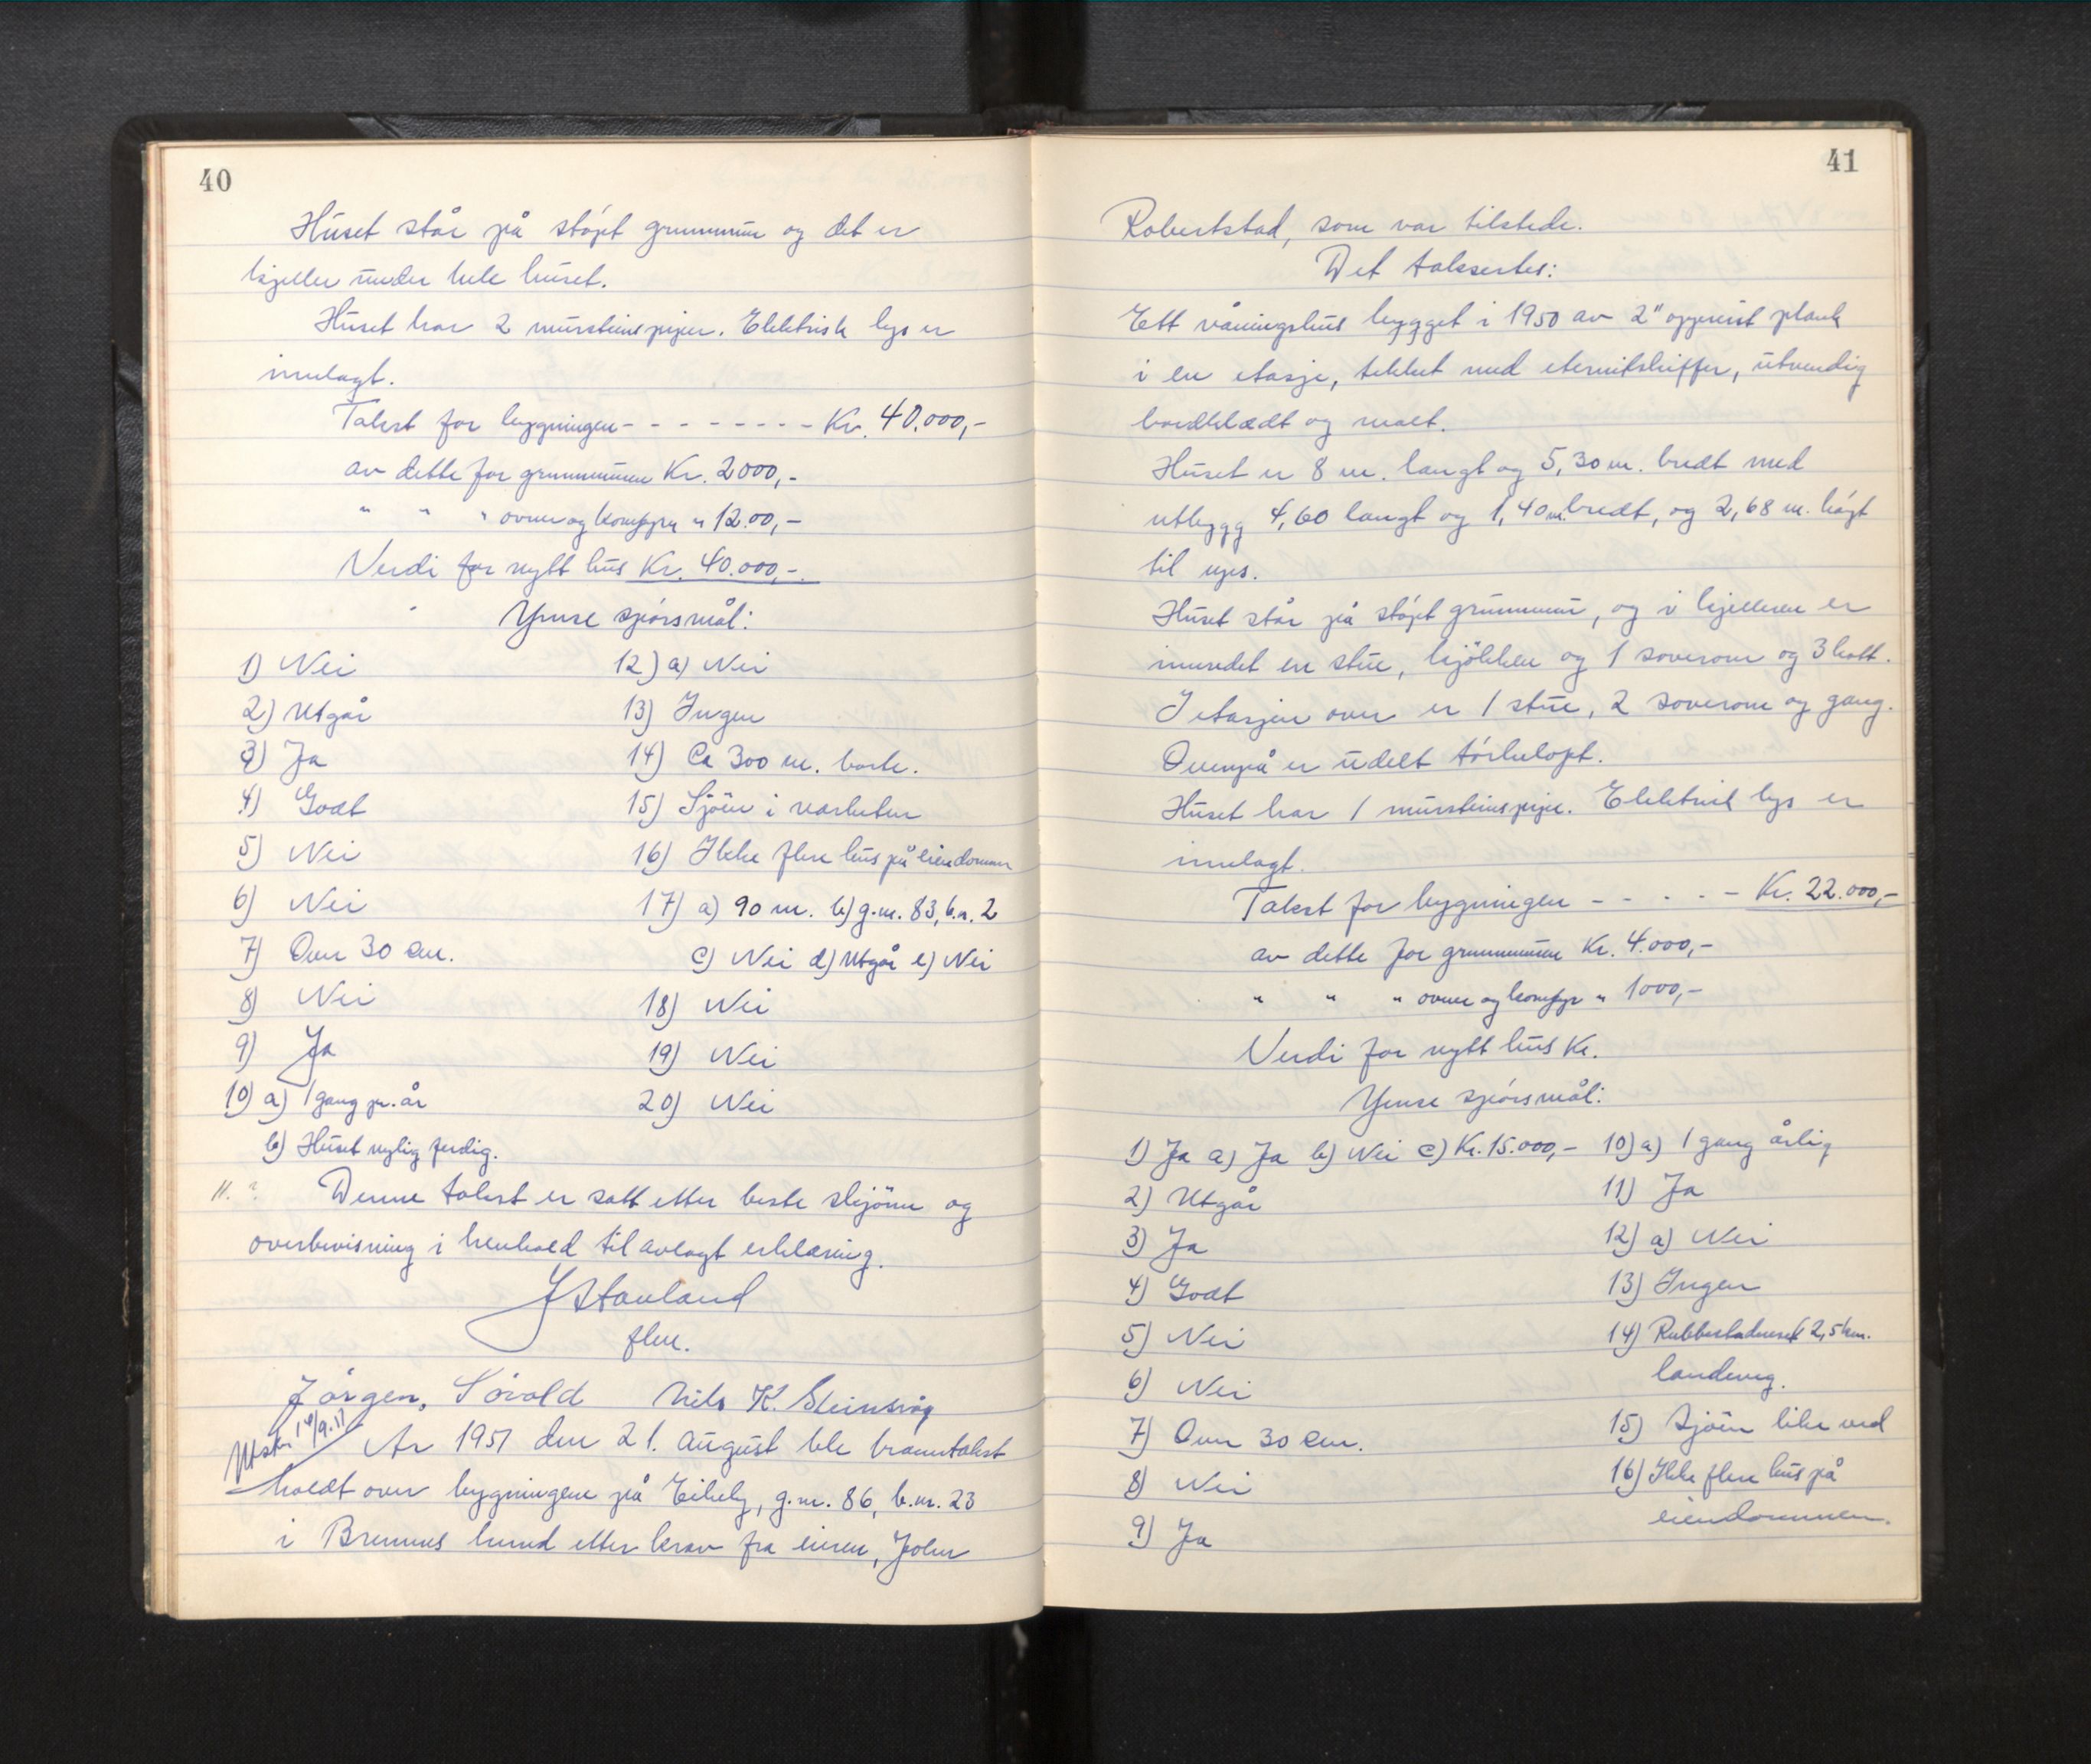 40
Huset står på støpt grunnmur og det er
kjeller under hele huset.
Huset har 2 mursteinspiper. Elektrisk lys er
innlagt.
Takst for bygningen - - - - - - - - Kr. 40.000,-
av dette for grunnmuren Kr. 2000,-
" " " ovner og komfyr " 12.00,-
Verdi for nytt hus Kr. 40.000,-.
Ymse spørsmål:
1) Nei
2) Utgår
3) Ja
4) Godt
5) Nei
6) Nei
7) Over 30 cm.
8) Nei
9) Ja
10) a) 1 gang pr. år
b) Huset nylig ferdig.
11. ?
12) a) Nei
13) Ingen
14) Ca 300 m. borte.
15) Sjøen i nærheten
16) Ikke flere hus på eiendommen
17) a) 90 m. b) g.nr. 83, b.n. 2
c) Nei d) Utgår e) Nei
18) Nei
19) Nei
20) Nei
Denne takst er satt etter beste skjønn og
overbevisning i henhold til avlagt erklæring.
J Stavland
flm.
Jørgen Søvold Nils K. Steinsvåg
Utskr. 14/9.51
År 1951 den 21. august ble branntakst
holdt over bygningene på Eikely, g.nr. 86, b.nr. 23
i Bremnes herred etter krav fra eieren, John
41
Robertstad, som var tilstede.
Det takseres:
Ett våningshus bygget i 1950 av 2" oppreist plank
i en etasje, tekket med eternitskiffer, utvendig
bordklædt og malt.
Huset er 8 m. langt og 5,30 m. bredt med
utbygg 4,60 langt og 1,40 m. bredt, og 2,68 m. høgt
til ups.
Huset står på støpt grunnmur, og i kjelleren er
innredet en stue, kjøkken og 1 soverom og 3 kott.
I etasjen over er 1 stue, 2 soverom og gang.
Ovenpå er udelt tørkeloft.
Huset har 1 mursteinspipe. Elektrisk lys er
innlagt.
Takst for bygningen - - - - - Kr. 22.000,-
av dette for grunnmuren Kr. 4.000,-
" " " ovner og komfyr " 1000,-
Verdi for nytt hus Kr.
Ymse spørsmål:
1) Ja a) Ja b) Nei c) Kr. 15.000,-
2) Utgår
3) Ja
4) Godt
5) Nei
6) Nei
7) Over 30 cm.
8) Nei
9) Ja
10) a) 1 gang årlig
11) Ja
12) a) Nei
13) Ingen
14) Rubbestadneset 2,5 km.
landeveg.
15) Sjøen like ved
16) Ikke flere hus på
eiendommen.